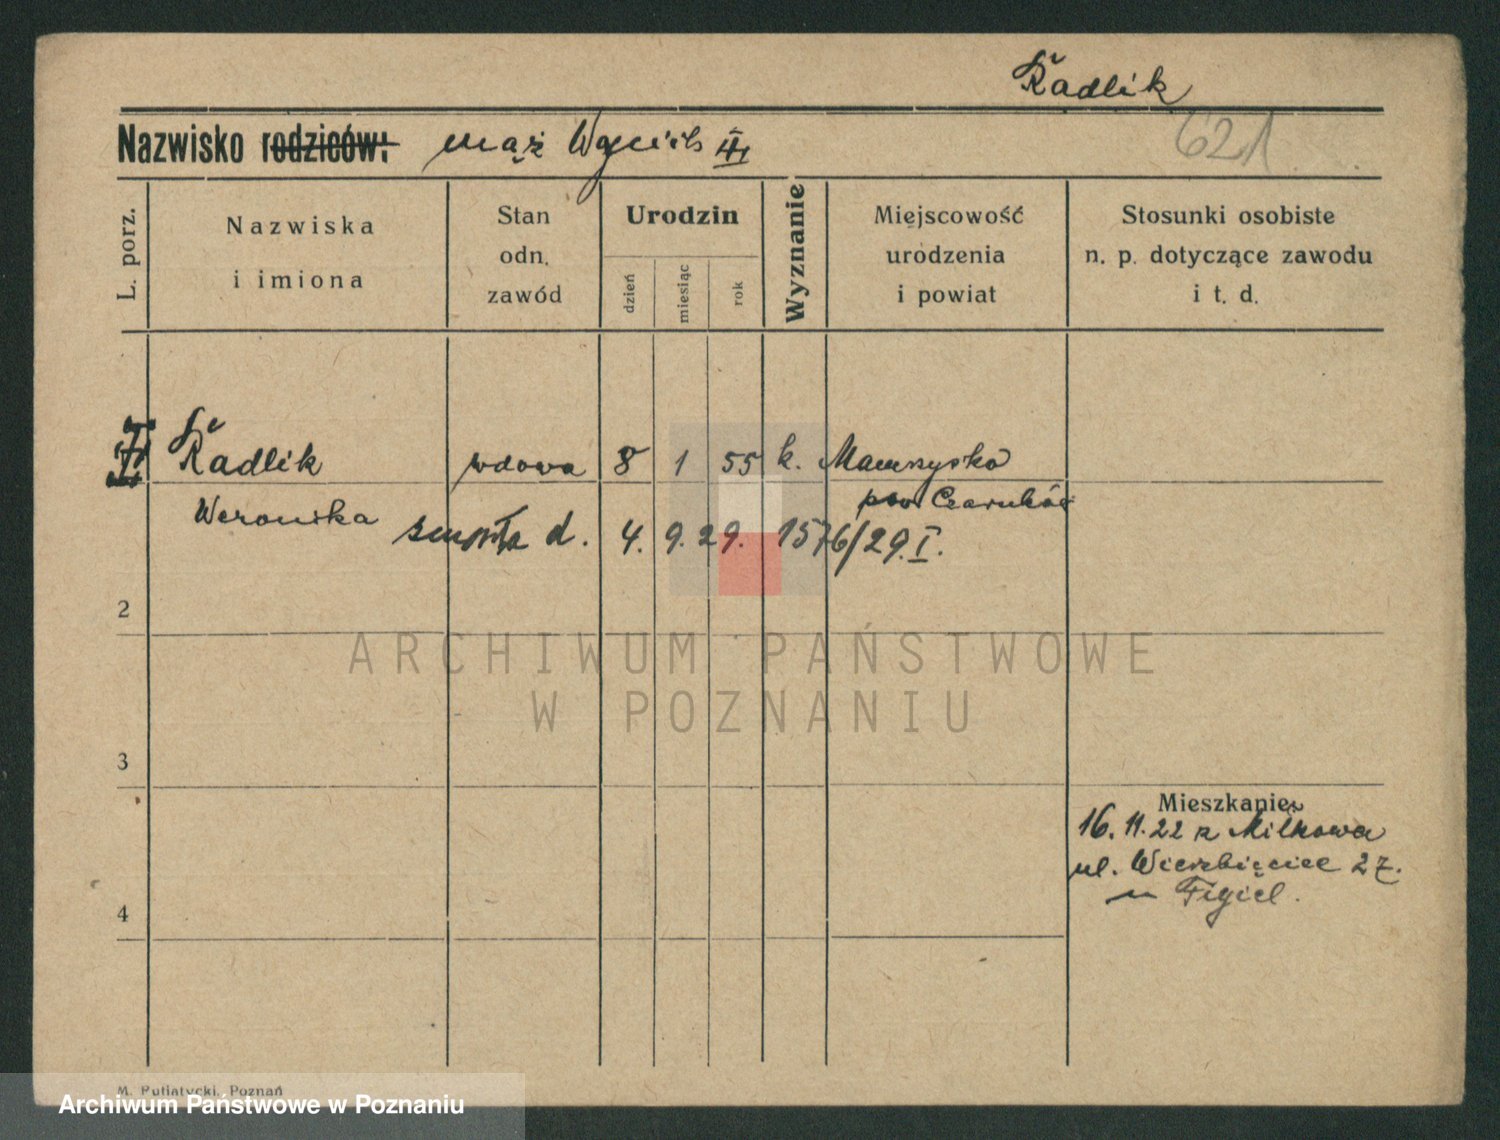 Radlik
621
Nazwisko rodziców: mąż III
L. porz.
Nazwiska
i imiona
Stan
odn.
zawód
Urodzin
dzień
miesiąc
rok
Wyznanie
Miejscowość
urodzenia
i powiat
Stosunki osobiste
n. p. dotyczące zawodu
i t. d.
Radlik wdowa 8 1 55 k.
Weronika
zmarła d. 4. 9. 29. 1576/29. I.
2
3
4
Mieszkanie
16. 11. 22 z Milkowa
ul. Wierzbięcice 27.
u Figiel.
ARCHIWUM PAŃSTWOWE
W POZNANIU
M. Putiatycki, Poznań
Archiwum Państwowe w Poznaniu